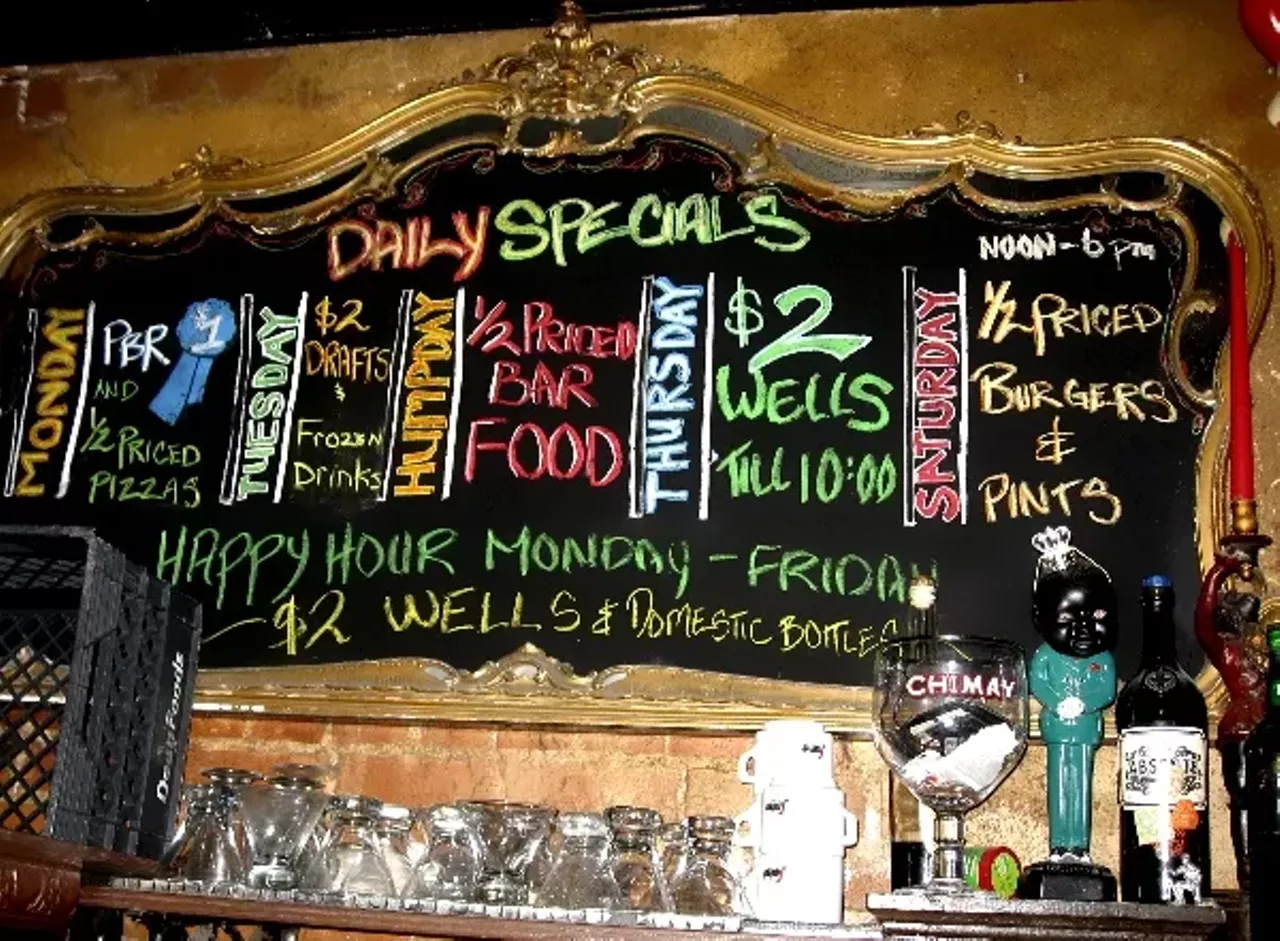 DAILY SPECIALS
MONDAY
PBR
1
AND
1/2 PRICED
PIZZAS
TUESDAY
$2
DRAFTS
&
Frozen
Drinks
HUMPDAY
1/2 PRICED
BAR
FOOD
THURSDAY
$2
WELLS
TILL 10:00
SATURDAY
NOON - 6 pm
1/2 PRICED
BURGERS
&
PINTS
HAPPY HOUR MONDAY - FRIDAY
$2 WELLS & DOMESTIC BOTTLES
CHIMAY